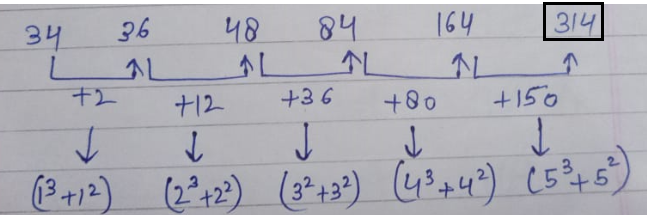 34 36 48 84 164 314
+2 +12 +36 +80 +150
(1³+1²) (2³+2²) (3²+3²) (4³+4²) (5³+5²)